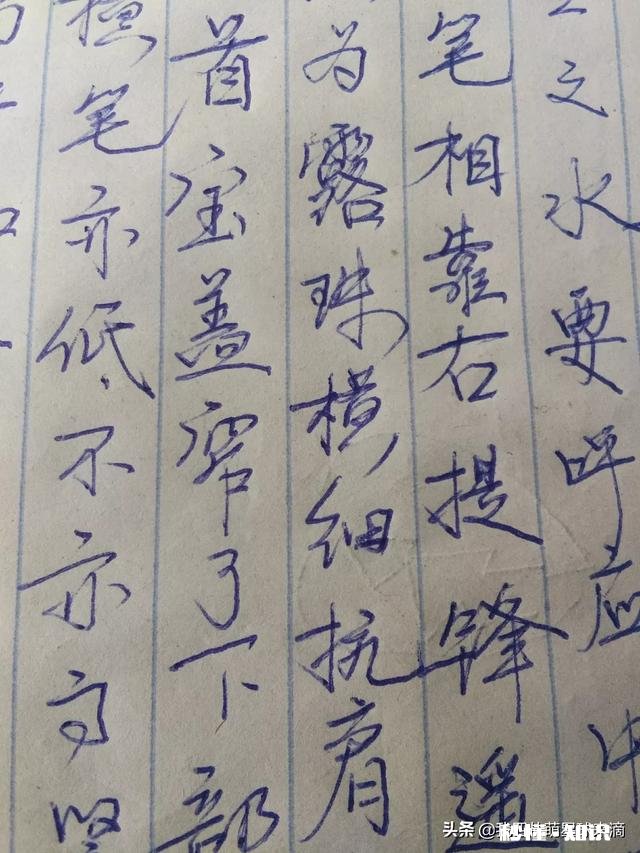 之水要呼应中
笔相靠右提锋遥
为露珠横细抗肩
首宝盖窄了下部
横笔亦低不亦高竖
头条